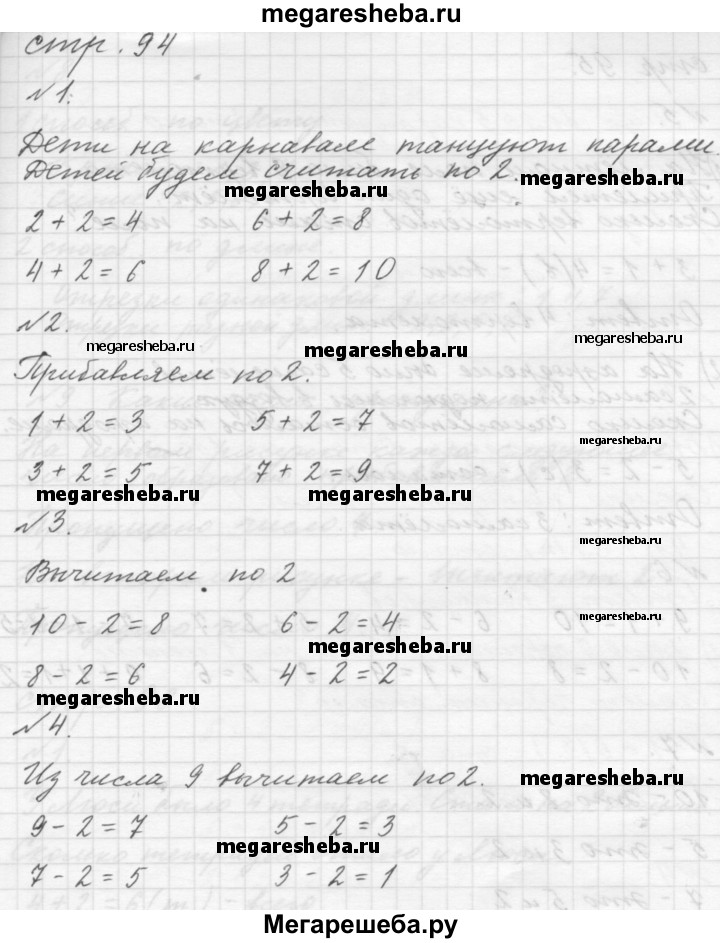 megaresheba.ru
стр. 94
№1.
Дети на карнавале танцуют парами.
Детей будем считать по 2.
megaresheba.ru
megaresheba.ru
2 + 2 = 4 6 + 2 = 8
4 + 2 = 6 8 + 2 = 10
№2.
megaresheba.ru
megaresheba.ru
megaresheba.ru
Прибавляем по 2.
1 + 2 = 3 5 + 2 = 7
megaresheba.ru
3 + 2 = 5 7 + 2 = 9
megaresheba.ru
megaresheba.ru
№3.
megaresheba.ru
Вычитаем по 2
10 - 2 = 8 6 - 2 = 4
megaresheba.ru
megaresheba.ru
8 - 2 = 6 4 - 2 = 2
megaresheba.ru
№4.
Из числа 9 вычитаем по 2.
megaresheba.ru
9 - 2 = 7 5 - 2 = 3
megaresheba.ru
7 - 2 = 5 3 - 2 = 1
Мегарешеба.ру